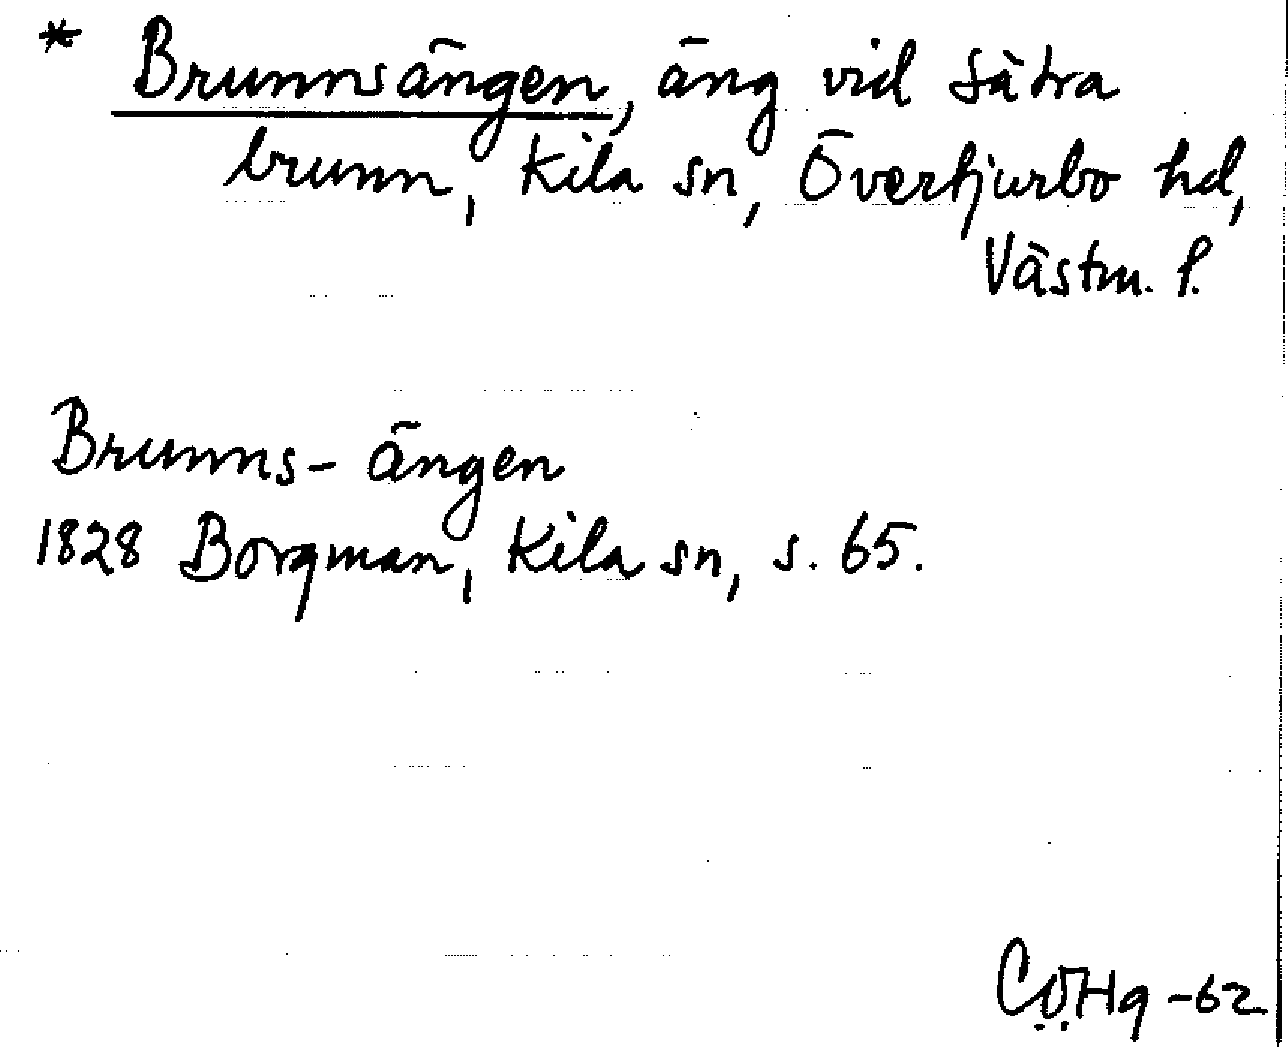 * Brunnsängen, äng vid Sätra
brunn, Kila sn, Övertjurbo hd,
Västm. l.
Brunns-ängen
1828 Borgman, Kila sn, s. 65.
CÖHq -62